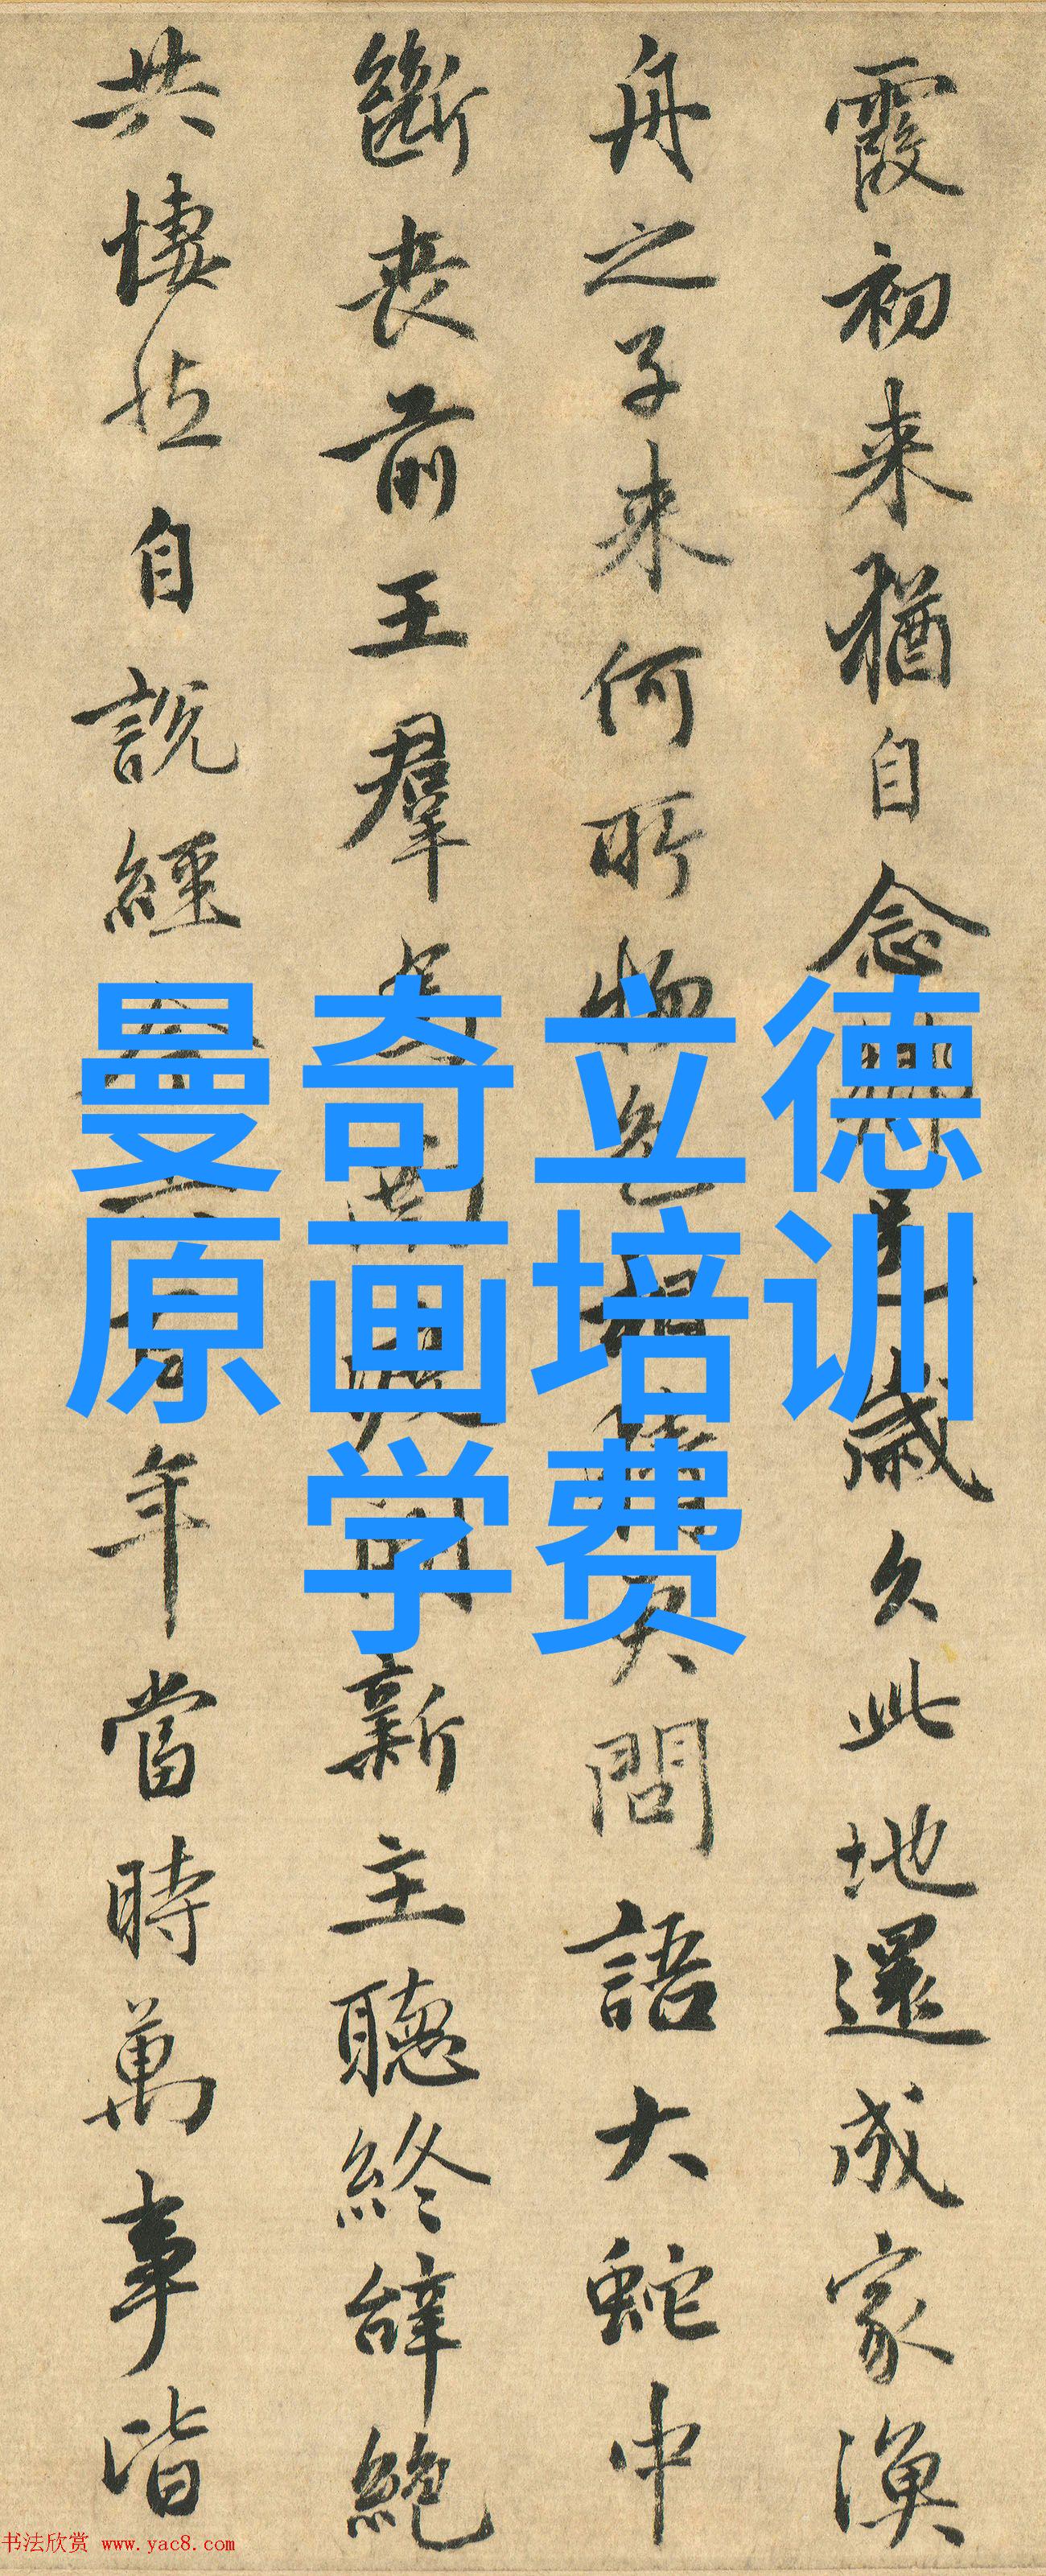 霞初来猶自念歲久此地還成家漁
舟之子来何所物色相問語大蛇中
斷喪前王羣新主聽終辭絶
共悽然自說經年當時萬事皆
曼奇立德
原画培训
学费
书法欣赏 www.yac8.com